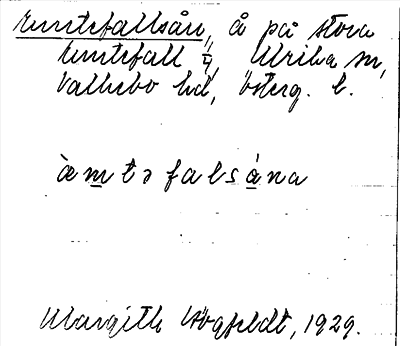 Emtefallsån, å på stora
Emtefall 1/4, Ulrika sn,
Valkebo hd, Österg. l.
àmtəfalsána
Margith Högfeldt, 1929.